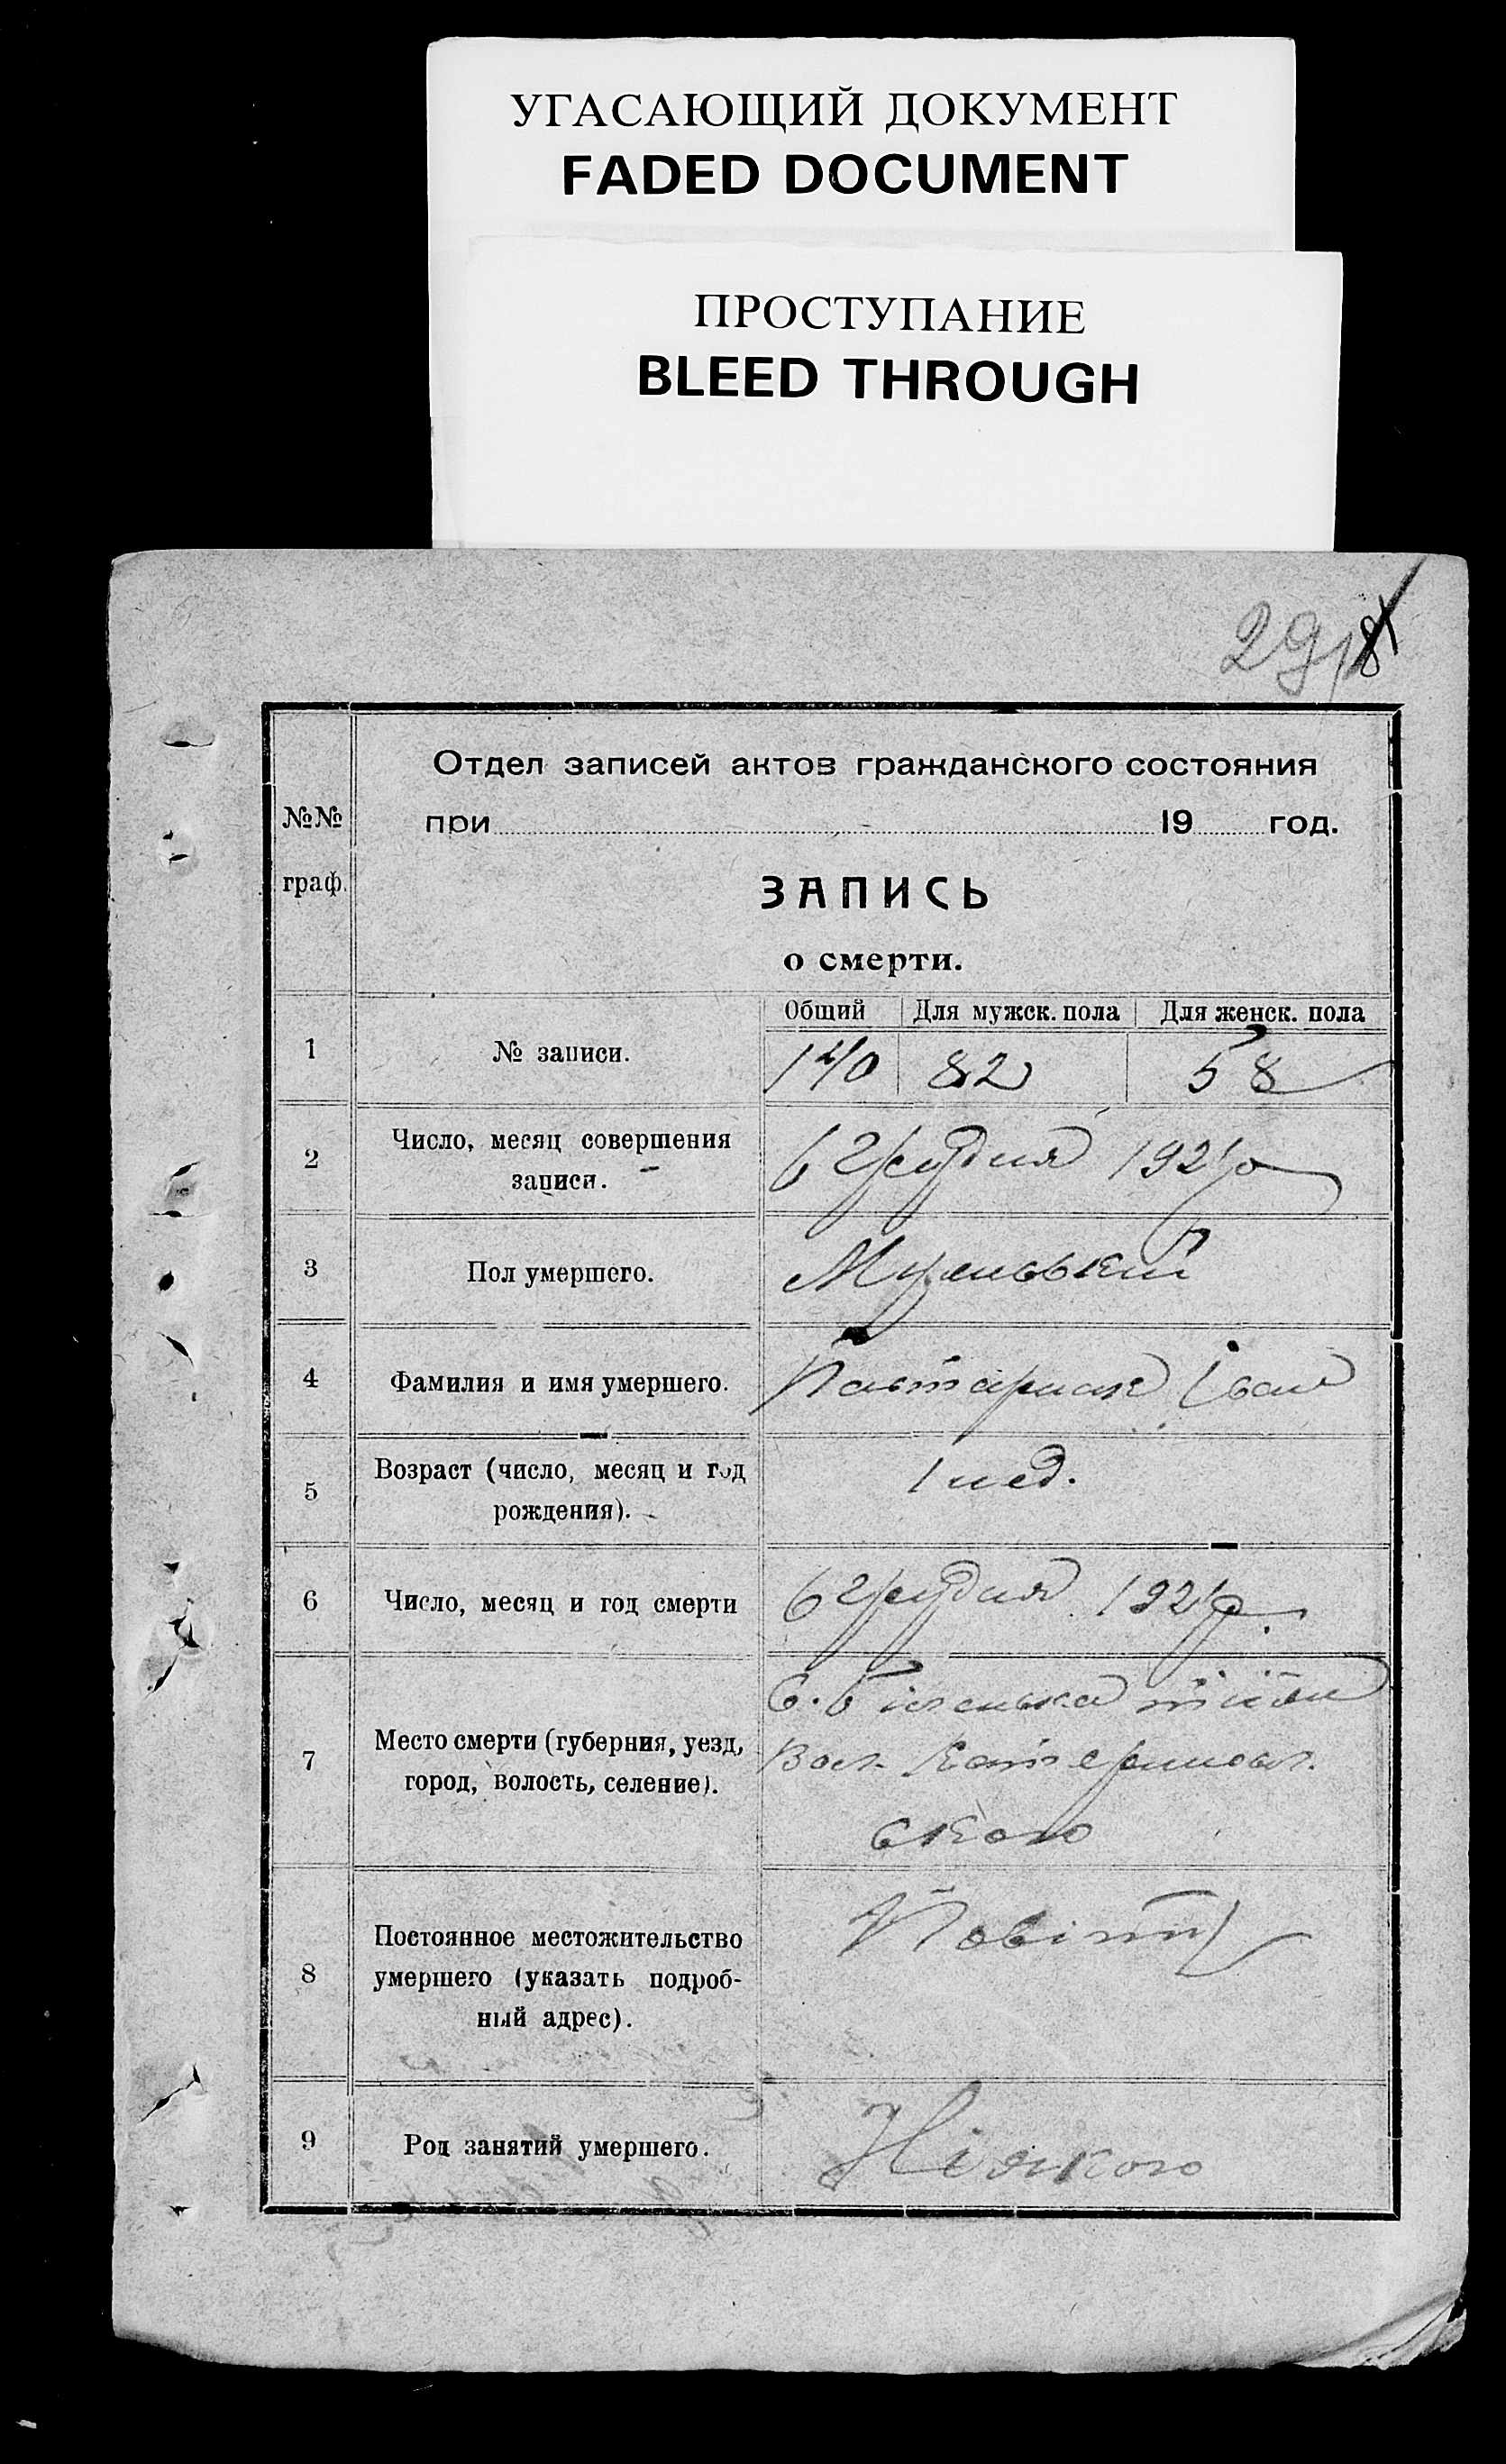 УГАСАЮЩИЙ ДОКУМЕНТ
FADED DOCUMENT
ПРОСТУПАНИЕ
BLEED THROUGH
29
№№ граф.
Отдел записей актов гражданского состояния
при 19 год.
ЗАПИСЬ
о смерти.
Общий Для мужск. пола Для женск. пола
1 № записи. 140 82 58
2 Число, месяц совершения
записи.
6 Грудня 1921 р
3 Пол умершего. Мужський
4 Фамилия и имя умершего. Іван
5 Возраст (число, месяц и год
рождения).
1 нед.
6 Число, месяц и год смерти 6 Грудня 1921 р.
7 Место смерти (губерния, уезд,
город, волость, селение).
С. Біленька тієї
Вол. Катеринослав
ского
8 Постоянное местожительство
умершего (указать подроб-
ный адрес).
Повіту
9 Род занятий умершего. Ніякого